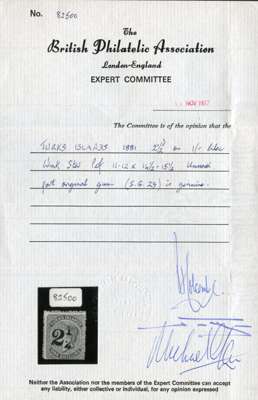 No. 82500
The
British Philatelic Association
London-England
EXPERT COMMITTEE
NOV 1977
The Committee is of the opinion that the
TURKS ISLANDS 1881 2½ on 1/- lilac
Wmk Star Perf 11-12 x 14½-15½ Unused
part original gum (S.G. 29) is genuine.
82500
2½
Neither the Association nor the members of the Expert Committee can accept
any liability, either collective or individual, for any opinion expressed